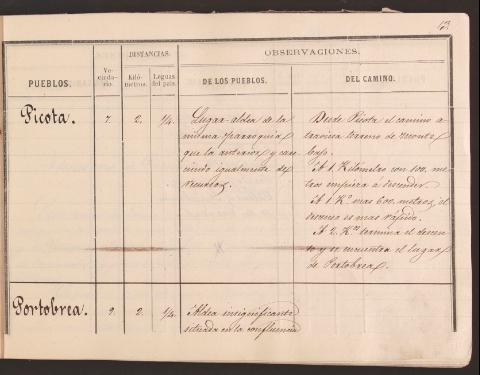 13
DISTANCIAS.
OBSERVACIONES.
PUEBLOS.
Ve-
cinda-
rio.
Kiló-
metros.
Leguas
del país.
DE LOS PUEBLOS.
DEL CAMINO.
Picota.
7.
2.
1/4.
Lugar-aldea de la
misma parroquia
que la anterior y care-
ciendo igualmente de
recursos.
Desde Picota el camino a-
traviesa terreno de monte
bajo.
A 1. Kilómetro con 100. me-
tros empieza á descender.
A 1. Kº mas 600. metros, el
descenso es mas rápido.
A 2. Kms termina el descen-
so y se encuentra el lugar
de Portobrea.
Portobrea.
9.
2.
1/4.
Aldea insignificante
situada en la confluencia